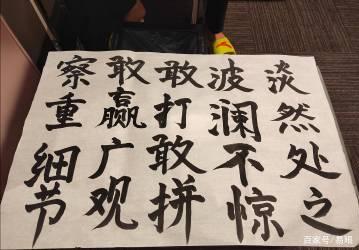 淡然处之
波澜不惊
敢打敢拼
敢赢广观
察重细节
百家号/